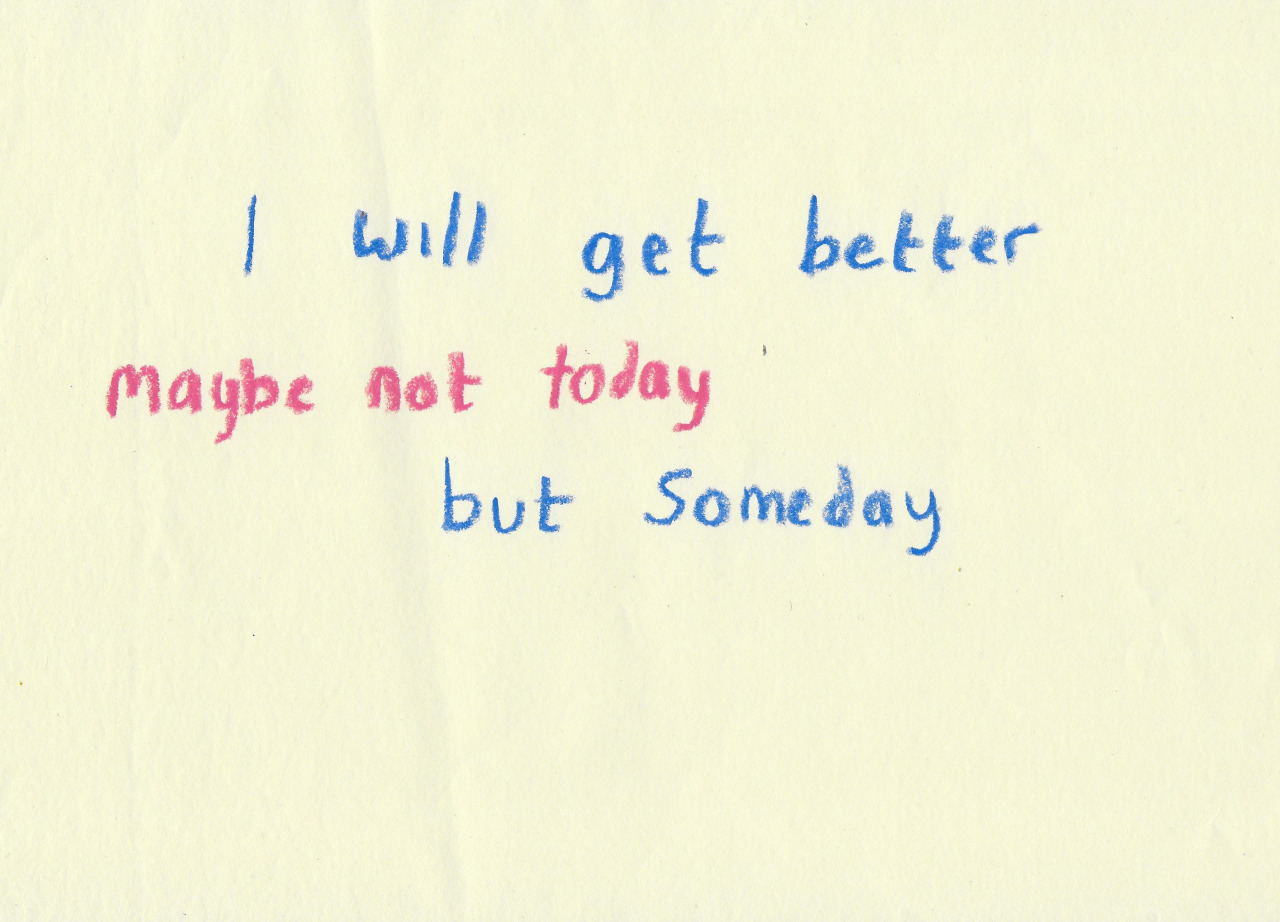 I will get better
maybe not today
but Someday